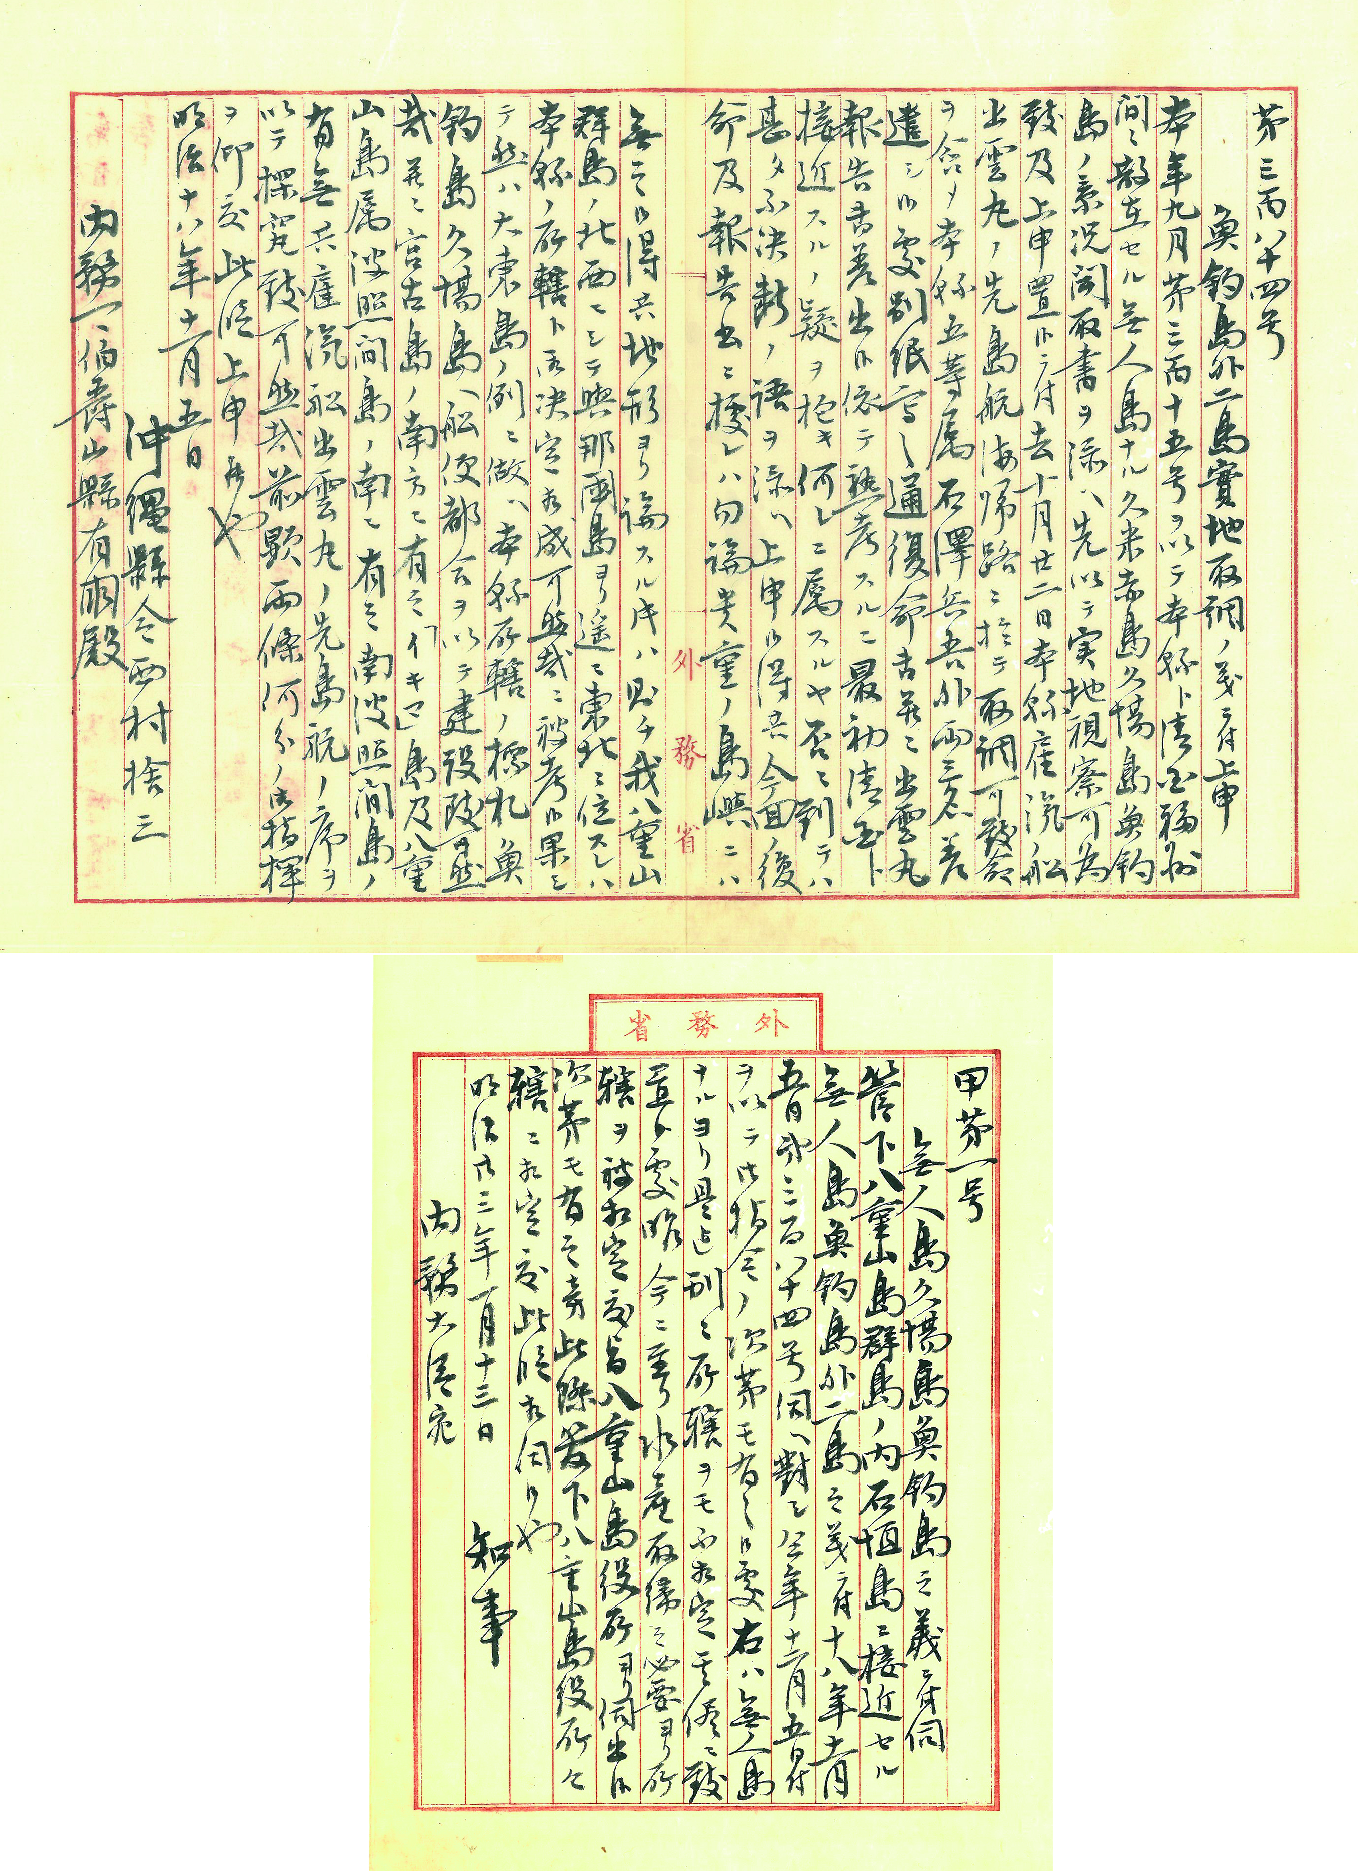 第三百八十四号
魚釣島外二島実地取調ノ義ニ付上申
本年九月第三百十五号ヲ以テ本県ト清国福州
間ニ散在セル無人島ナル久米赤島久場島魚釣
島ノ景況聞取書ヲ添ヘ先以テ実地視察可為
致及上申置候ニ付去十月廿二日本県雇汽船
出雲丸ノ先島航海帰路ニ於テ取調可致命
ヲ含メ本県五等属石澤兵吾外両三名差
遣シ候処別紙写之通復命書並ニ出雲丸
報告書差出候依テ熟考スルニ最初清国ト
接近スルノ疑ヲ抱キ何レニ属スルヤ否ニ到テハ
甚タ不決断ノ語ヲ添ヘ上申候得共今回ノ復
命及報告書ニ拠レハ勿論貴重ノ島嶼ニハ
外務省
無之候得共地形ヨリ論スル片ハ則チ我八重山
群島ノ北西ニシテ與那国島ヨリ遥ニ東北ニ位スレハ
本県ノ所轄ト御決定相成可然哉ニ被考候果シ
テ然ハ大東島ノ例ニ倣ヘ本県所轄ノ標札魚
釣島久場島ヘ船便都合ヲ以テ建設致可然
哉并ニ宮古島ノ南方ニ有之イキマ島及八重
山島属波照間島ノ南ニ有之南波照間島ノ
有無共雇汽船出雲丸ノ先島航ノ序ヲ
以テ探究致可然哉前顕両條何分ノ御指揮
ヲ仰度此段上申候也
明治十八年十一月五日
沖縄縣令西村捨三
内務卿伯爵山縣有朋殿
外務省
甲第一号
無人島久場島魚釣島之義ニ付伺
管下八重山島群島ノ内石垣島ニ接近セル
無人島魚釣島外二島之義ニ付十八年十一月
五日第三百八十四号伺ヘ対シ仝年十二月五日付
ヲ以テ御指令ノ次第モ有之候処右ハ無人島
ナルヨリ是迄別ニ所轄ヲモ不相定其儘ニ致
置候処昨今ニ至リ水産取締之必要ヨリ所
轄ヲ被相定度旨八重山島役所ヨリ伺出候
次第モ有之旁此際管下八重山島役所々
轄ニ相定度此段相伺候也
明治廿三年一月十三日
知事
内務大臣宛